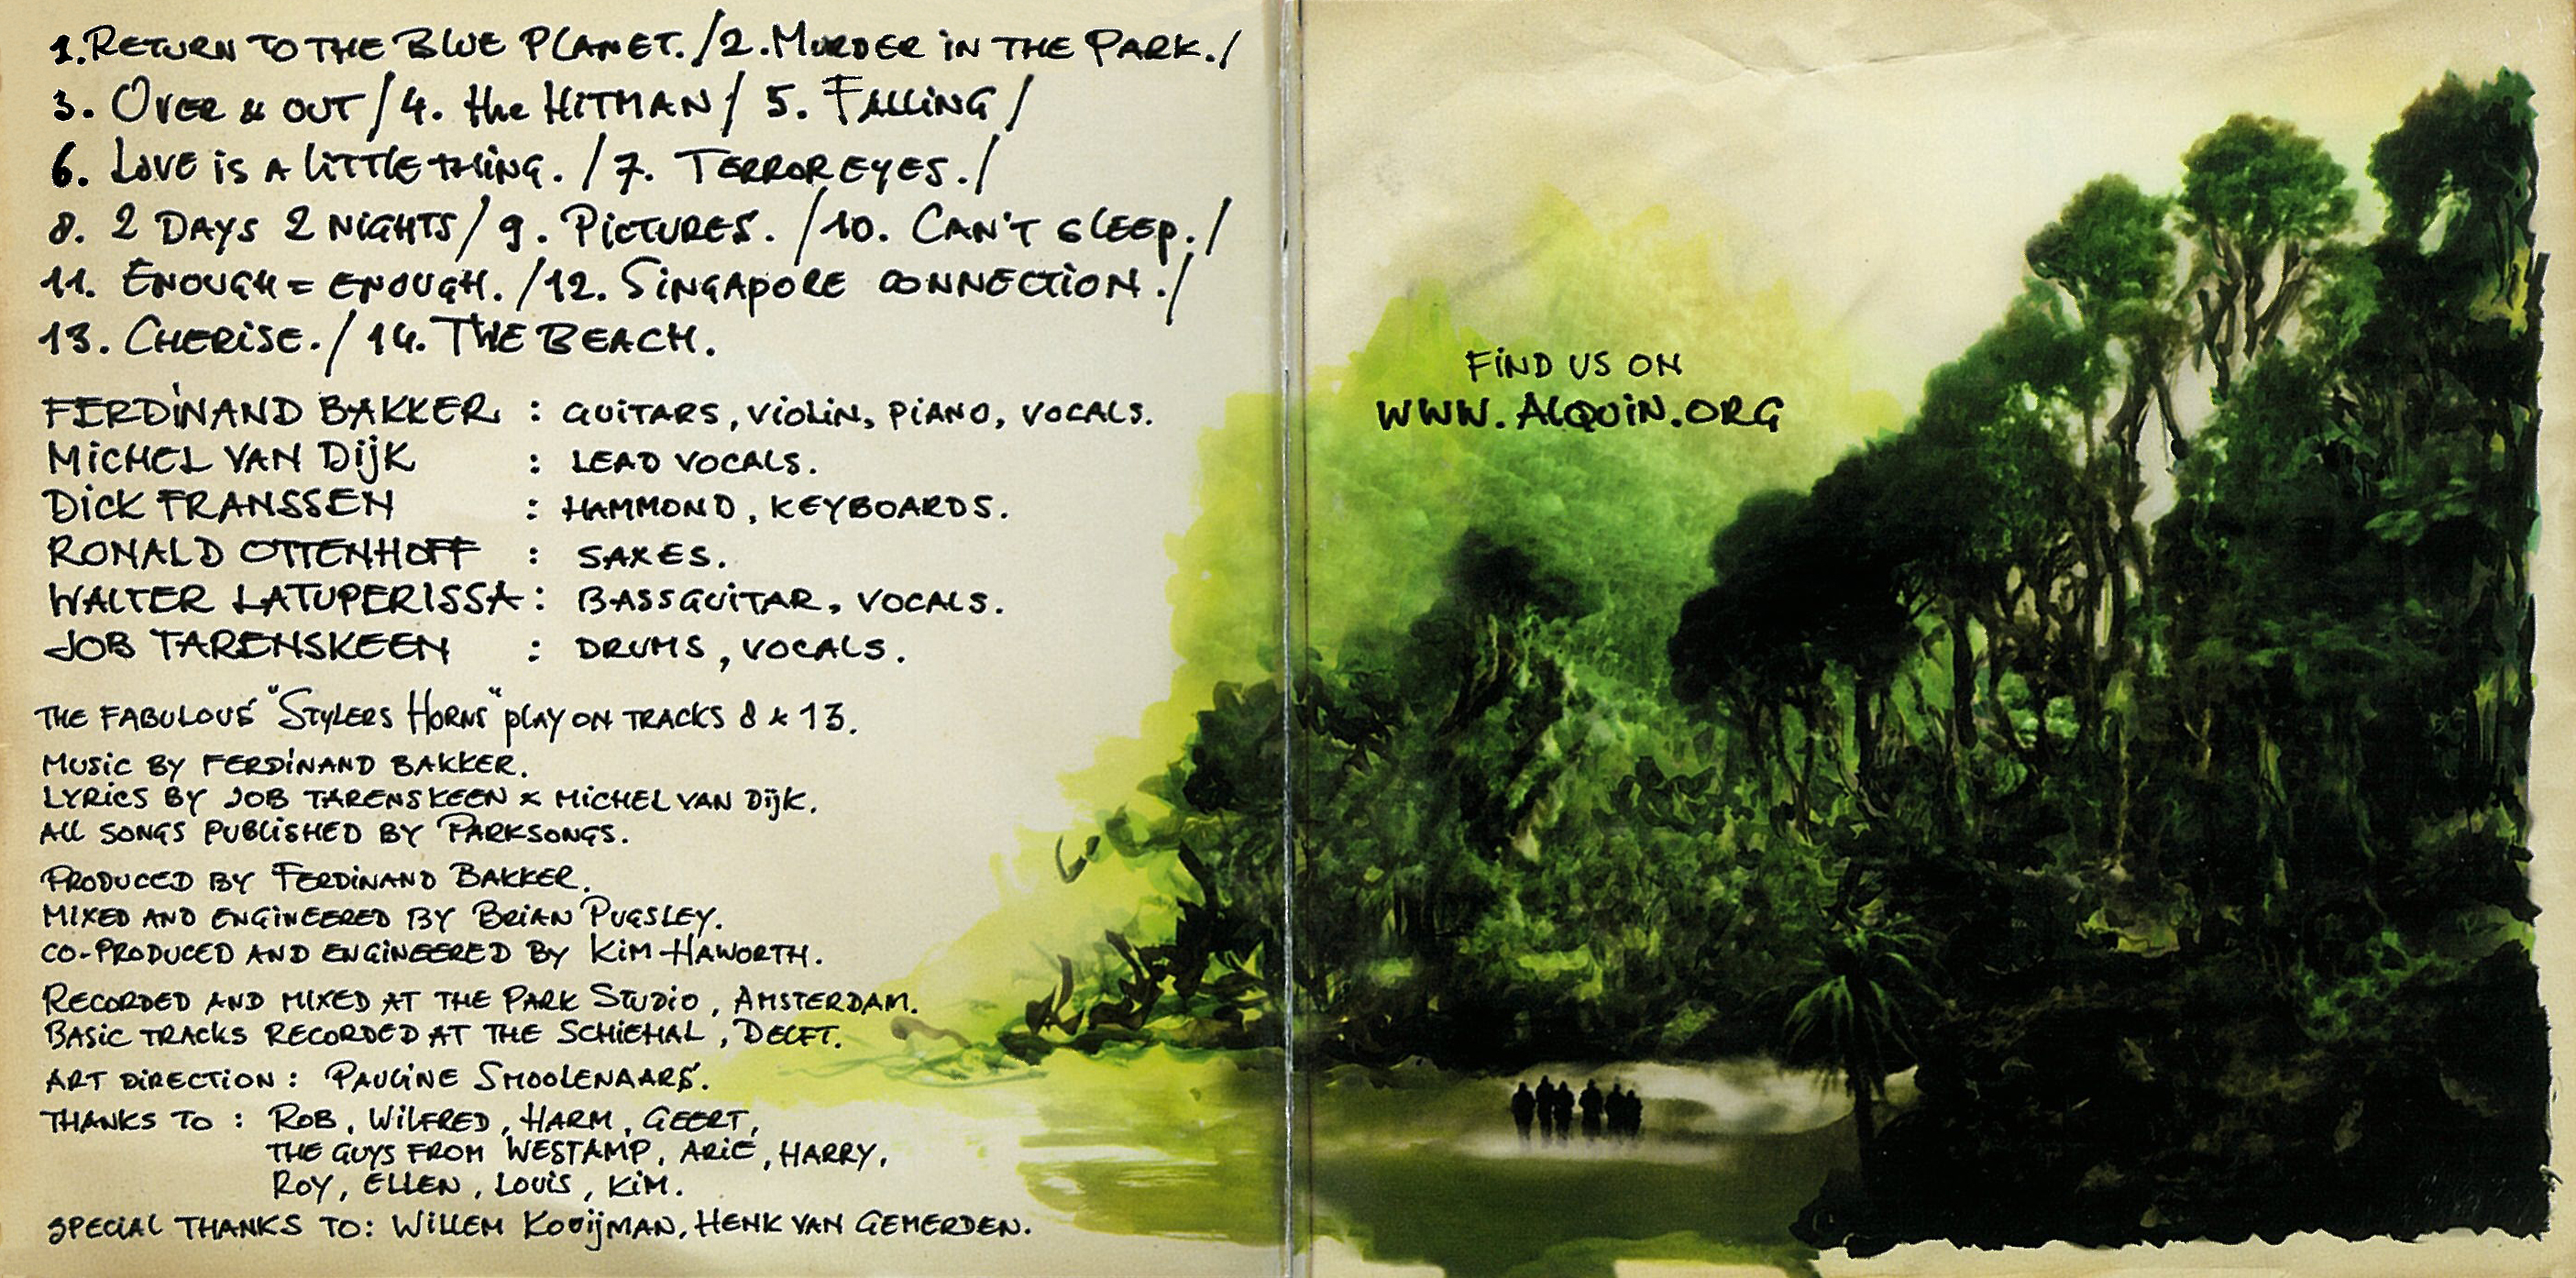 1. Return to the Blue Planet. / 2. Murder in the Park. /
3. Over & out / 4. the Hitman / 5. Falling /
6. Love is a little thing. / 7. Terror eyes. /
8. 2 Days 2 nights / 9. Pictures. / 10. Can't sleep. /
11. Enough = enough. / 12. Singapore connection. /
13. Cherise. / 14. The Beach.
FERDINAND BAKKER : GUITARS, VIOLIN, PIANO, VOCALS.
MICHEL VAN DIJK : LEAD VOCALS.
DICK FRANSSEN : HAMMOND, KEYBOARDS.
RONALD OTTENHOFF : SAXES.
WALTER LATUPERISSA : BASSGUITAR, VOCALS.
JOB TARENSKEEN : DRUMS, VOCALS.
THE FABULOUS "Stylers Horns" play on tracks 8 & 13.
Music by Ferdinand Bakker.
Lyrics by Job Tarenskeen & Michel van Dijk.
All songs published by Parksongs.
Produced by Ferdinand Bakker.
Mixed and engineered by Brian Pugsley.
Co-produced and engineered by Kim Haworth.
Recorded and mixed at the Park Studio, Amsterdam.
Basic tracks recorded at the Schiehal, Delft.
Art direction : Pauline Smoolenaars.
Thanks to : Rob, Wilfred, Harm, Geert,
the guys from Westamp, Arie, Harry,
Roy, Ellen, Louis, Kim.
Special thanks to : Willem Kooijman, Henk van Gemerden.
FIND US ON
WWW.ALQUIN.ORG